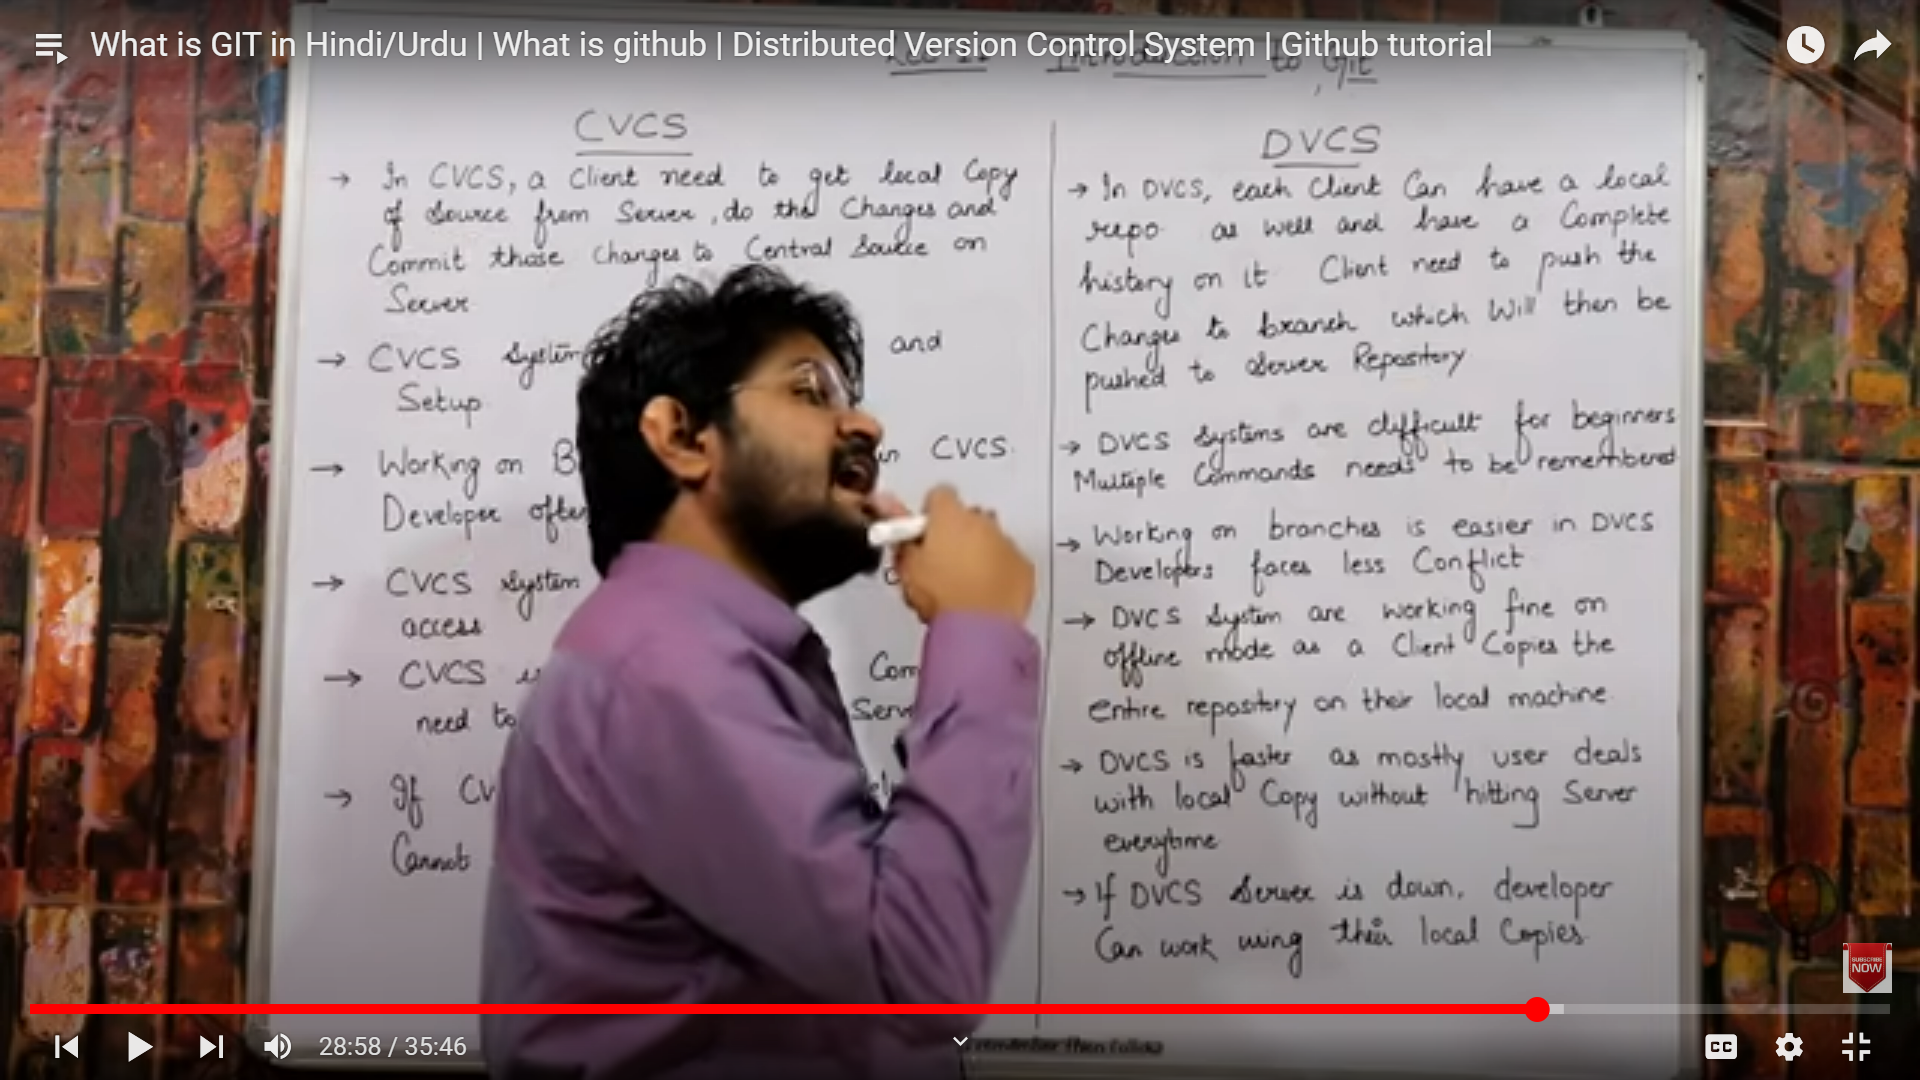 What is GIT in Hindi/Urdu | What is github | Distributed Version Control System | Github tutorial
Introduction to Git
CVCS
→ In CVCS, a Client need to get local Copy
of Source from Server, do the Changes and
Commit those Changes to Central Source on
Server
→ CVCS System and
Setup
→ Working on B in CVCS.
Developer often
→ CVCS System
access
→ CVCS is Com
need to Serve
→ If CV
Cannot
DVCS
→ In DVCS, each Client Can have a local
repo as well and have a Complete
history on it Client need to push the
Changes to branch which Will then be
pushed to Server Repository
→ DVCS Systems are difficult for beginners
Multiple Commands needs to be remembered
→ Working on branches is easier in DVCS
Developers faces less Conflict
→ DVCS System are working fine on
offline mode as a Client Copies the
entire repository on their local machine.
→ DVCS is faster as mostly user deals
with local Copy without hitting Server
everytime
→ If DVCS Server is down, developer
Can work using their local Copies
SUBSCRIBE
NOW
28:58 / 35:46
CC